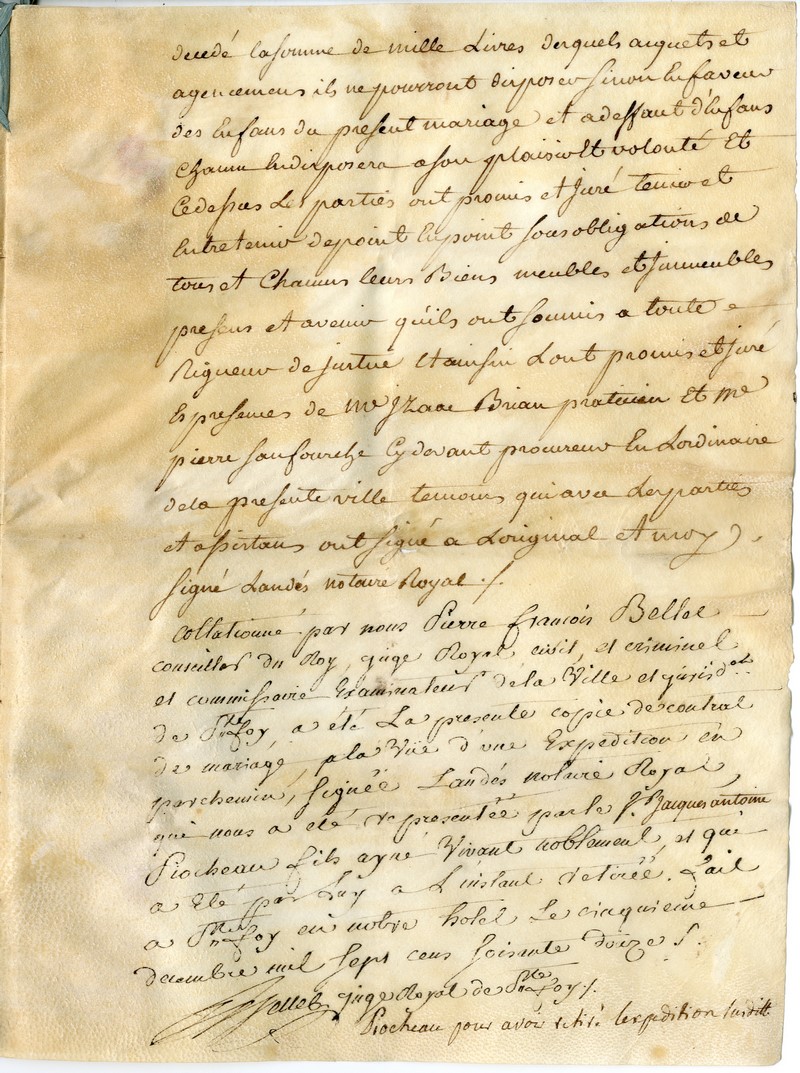 decedé la somme de mille Livres desquels acquets et
agencemens ils ne pourront disposer sinon En faveur
des Enfans du present mariage et a deffaut d'Enfans
Chacun En disposera a son plaisir Et volonté Et
Cedessus Les parties ont promis et Juré tenir et
Entretenir depoint Enpoint sous obligations de
tous et Chacuns leurs Biens meubles et Jmmeubles
presens et avenir qu'ils ont soumis a toute
Rigueur de justice Et ainsin L'ont promis et juré
Es presences de me jzaac Brian praticien Et me
pierre sanfourche Cy devant procureur En Lordinaire
dela presente ville temoins qui avec Les parties
et assistans ont signé a Loriginal et moy
signé Landés notaire Royal ./.
Collationné par nous Pierre françois Bellet
conseiller du Roy, juge Royal civil, et criminel
et commissaire Examinateur de la Ville et jurisdon
de Ste Foy, a été La presente copie de contrat
de mariage, a la Vüe d'une Expedition en
parchemin, signéé Landés notaire Royal,
qui nous a eté representéé par le sr Jacques antoine
Piocheau fils ayné Vivant noblement, et qui
a Eté par Luy a L'instant retiréé. Fait
a Ste Foy en notre hotel Le cinquieme
decembre mil sept cens soisante treize ./.
Bellet juge Royal de Ste Foy ./.
Piocheau pour avoir retiré lexpedition susditte